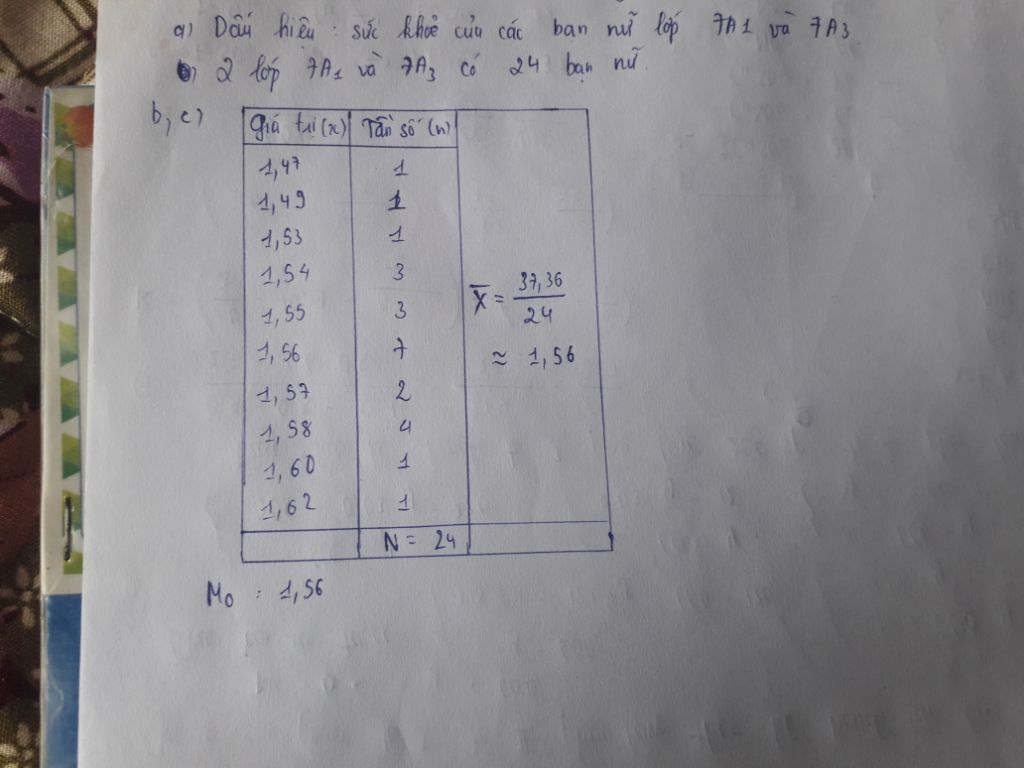 a) Dấu hiệu : sức khoẻ của các bạn nữ lớp 7A1 và 7A3
2 lớp 7A1 và 7A3 có 24 bạn nữ.
b, c)
Giá trị (x) Tần số (n)
1,47 1
1,49 1
1,53 1
1,54 3
1,55 3
1,56 7
1,57 2
1,58 4
1,60 1
1,62 1
N = 24
X̄ = 37,36 / 24
≈ 1,56
M₀ : 1,56